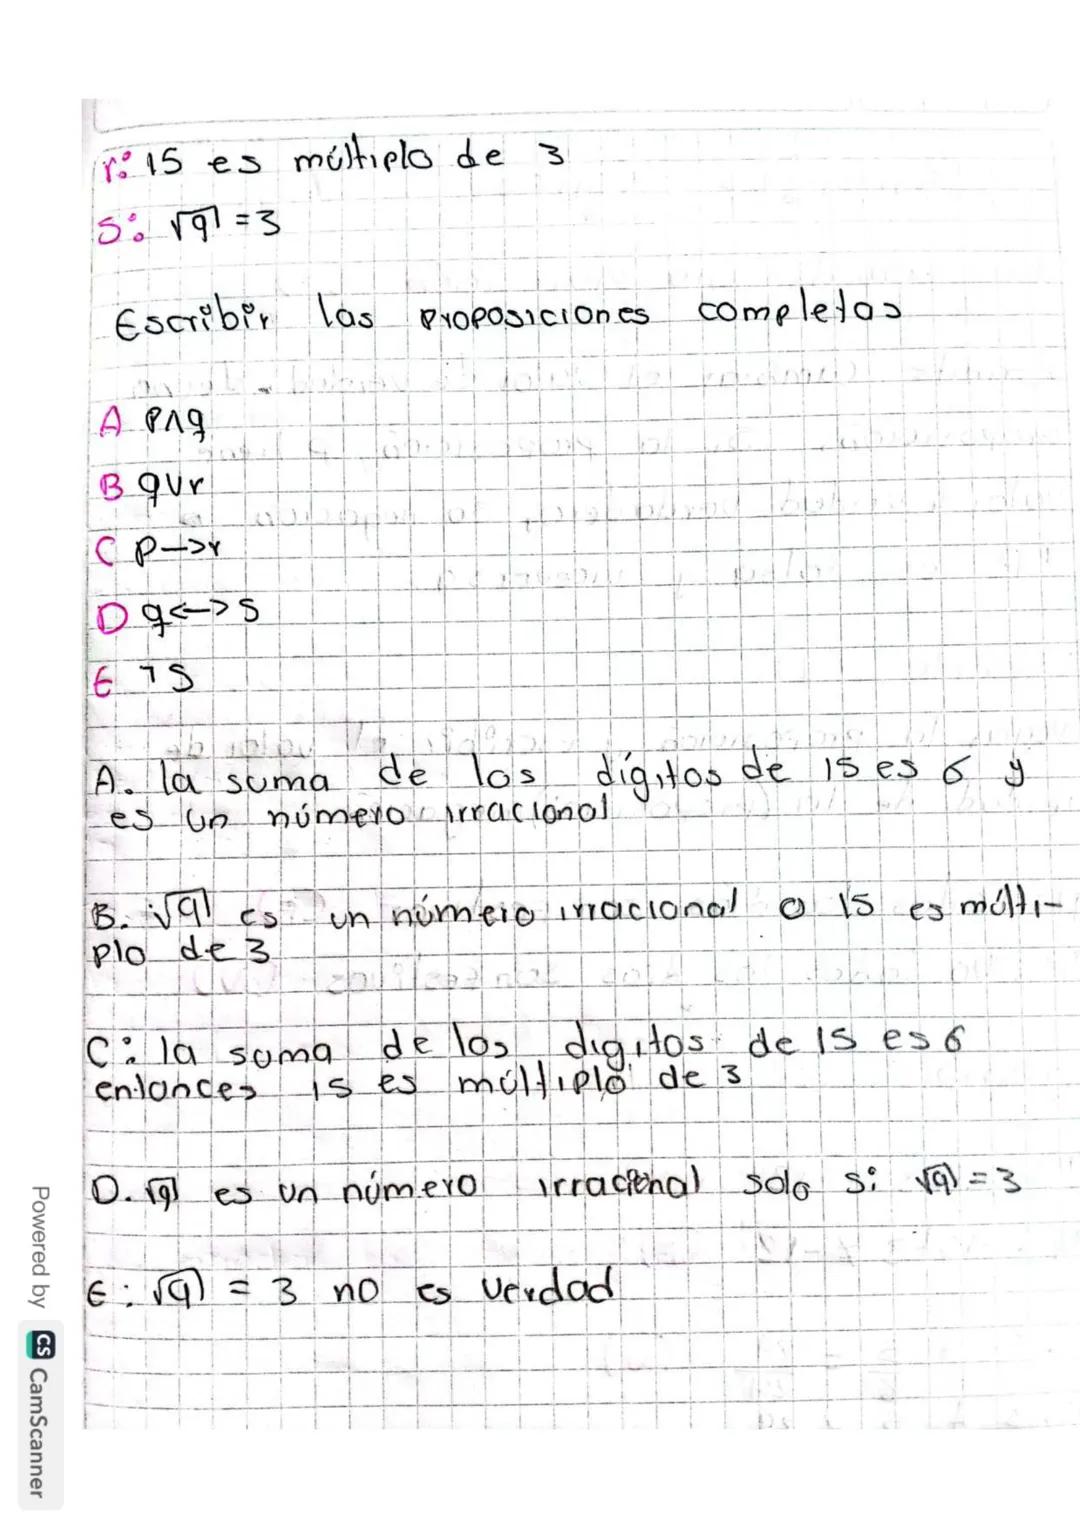 r: 15 es múltiplo de 3
S: √9 = 3
Escribir las proposiciones completas
A p∧q
B q∨r
C p—>r
D q<—>s
E ¬S
A. la suma de los dígitos de 15 es 6 y
es un número irracional
B. √9 es un número irracional o 15 es múlti-
plo de 3
C: la suma de los digitos de 15 es 6
entonces 15 es múltiplo de 3
D. √9 es un número irracional solo si √9 = 3
E: √9 = 3 no es verdad
Powered by CS CamScanner